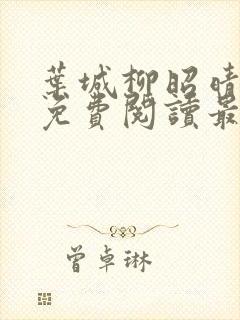 葉城柳昭晴
免費閱讀最
曾卓琳